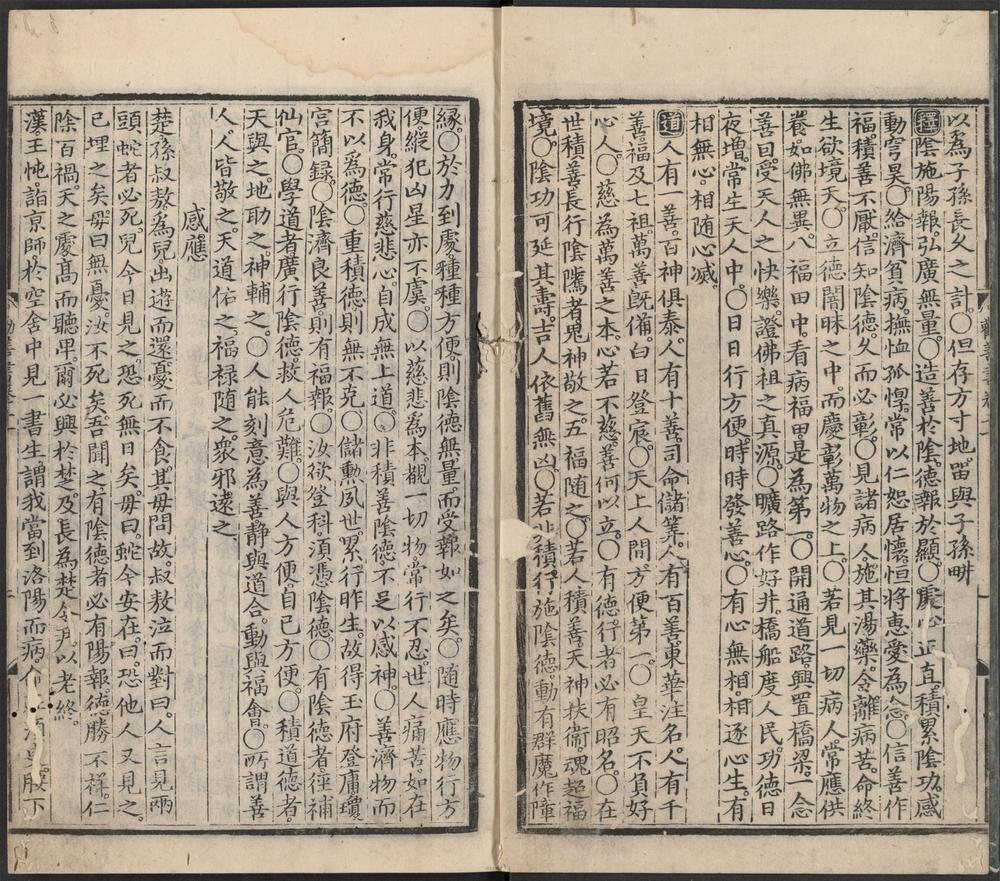 以爲子孫長久之計○但存方寸地留與子孫畊
釋陰施陽報弘廣無量○造善於陰德報於顯○處心正直積累陰功感
動穹昊○給濟貧病撫恤孤惸常以仁恕居懷恒將惠愛爲念○信善作
福積善不厭信知陰德久而必彰○見諸病人施其湯藥令離病苦命終
生欲境天○立德闇昧之中而慶彰萬物之上○若見一切病人常應供
養如佛無異八福田中看病福田是爲第一○開通道路興置橋梁一念
善因受天人之快樂證佛祖之真源○曠路作好井橋船度人民功德日
夜增常生天人中○日日行方便時時發善心○有心無相相逐心生有
相無心相隨心滅
道人有一善百神俱泰人有十善司命儲筭人有百善東華注名人有千
善福及七祖萬善旣備白日登宸○天上人間方便第一○皇天不負好
心人○慈為萬善之本心若不慈善何以立○有德行者必有昭名○在
世積善長行陰隲者鬼神敬之五福随之○若人積善天神扶衞魂超福
境○陰功可延其壽吉人依舊無凶○若非積行施陰德動有群魔作障
縁○於力到處種種方便則陰德無量而受報如之矣○随時應物行方
便縱犯凶星亦不虞○以慈悲爲本觀一切物常行不忍世人痛苦如在
我身常行慈悲心自成無上道○非積善陰德不足以感神○善濟物而
不以爲德○重積德則無不克○儲勲夙世累行昨生故得玉府登庸瓊
宫簡録○陰濟良善則有福報○汝欲登科須憑陰德○有陰德者徑補
仙官○學道者廣行陰德救人危難○與人方便自己方便○積道德者
天與之地助之神輔之○人能刻意為善静與道合動與福會○所謂善
人人皆敬之天道佑之福禄随之衆邪遠之
感應
楚孫叔敖爲兒出遊而還憂而不食其母問故叔敖泣而對曰人言見兩
頭蛇者必死兒今日見之恐死無日矣母曰蛇今安在曰恐他人又見之
已埋之矣母曰無憂汝不死矣吾聞之有陰德者必有陽報德勝不祥仁
除百禍天之處髙而聽卑爾必興於楚及長為楚令尹以老終
漢王忳詣亰師於空舍中見一書生謂我當到洛陽而病腰下